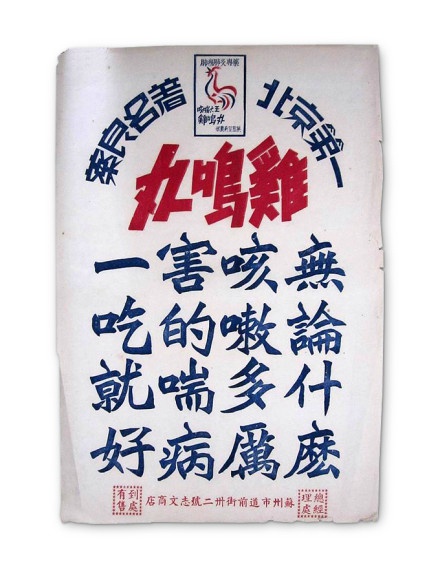 咳嗽大王
鷄鳴丸
北京第一
著名良藥
雞鳴丸
無論什麽
咳嗽多厲
害的喘病
一吃就好
總經理處
蘇州市道前街卅二號志文商店
到處有售